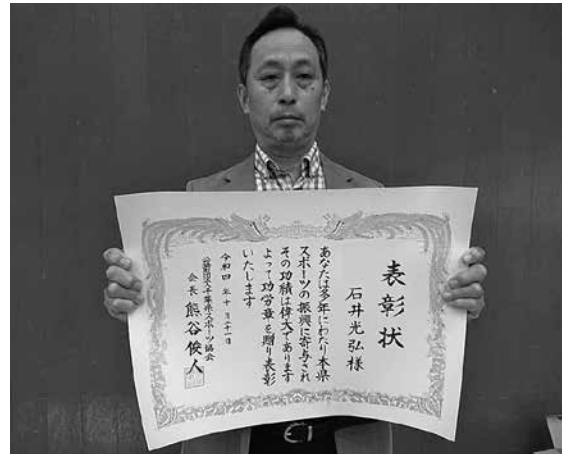 表彰状
石井光弘様
あなたは多年にわたり本県
スポーツの振興に寄与され
その功績は偉大であります
よって功労章を贈り表彰
いたします
令和四年十月二十一日
公益財団法人千葉県スポーツ協会
会長 熊谷俊人